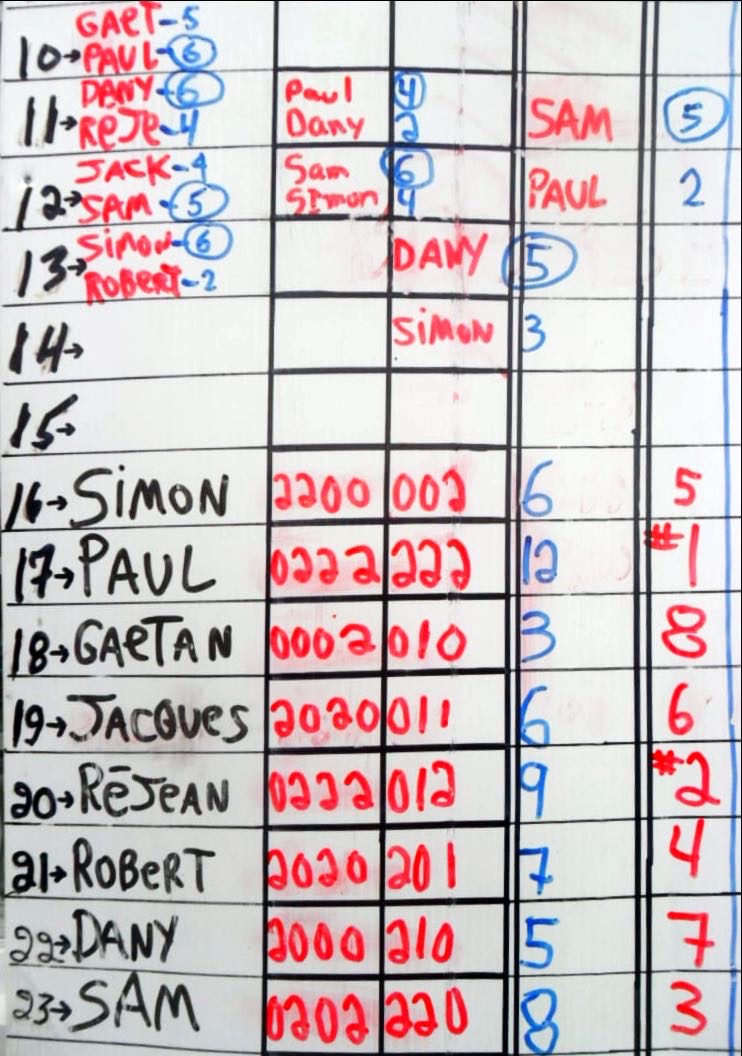 GAET-5
10→PAUL-6
DANY-6 Paul 4
11→REJE-4 Dany 2 SAM 5
JACK-4 Sam 6
12→SAM-5 Simon 4 PAUL 2
SIMON-6
13→ROBERT-2 DANY 5
14→ SIMON 3
15→
16→SIMON 2200 002 6 5
17→PAUL 0222 222 12 #1
18→GAETAN 0002 010 3 8
19→JACQUES 2020 011 6 6
20→RĒJEAN 0222 012 9 #2
21→ROBERT 2020 201 7 4
22→DANY 2000 210 5 7
23→SAM 0202 220 8 3